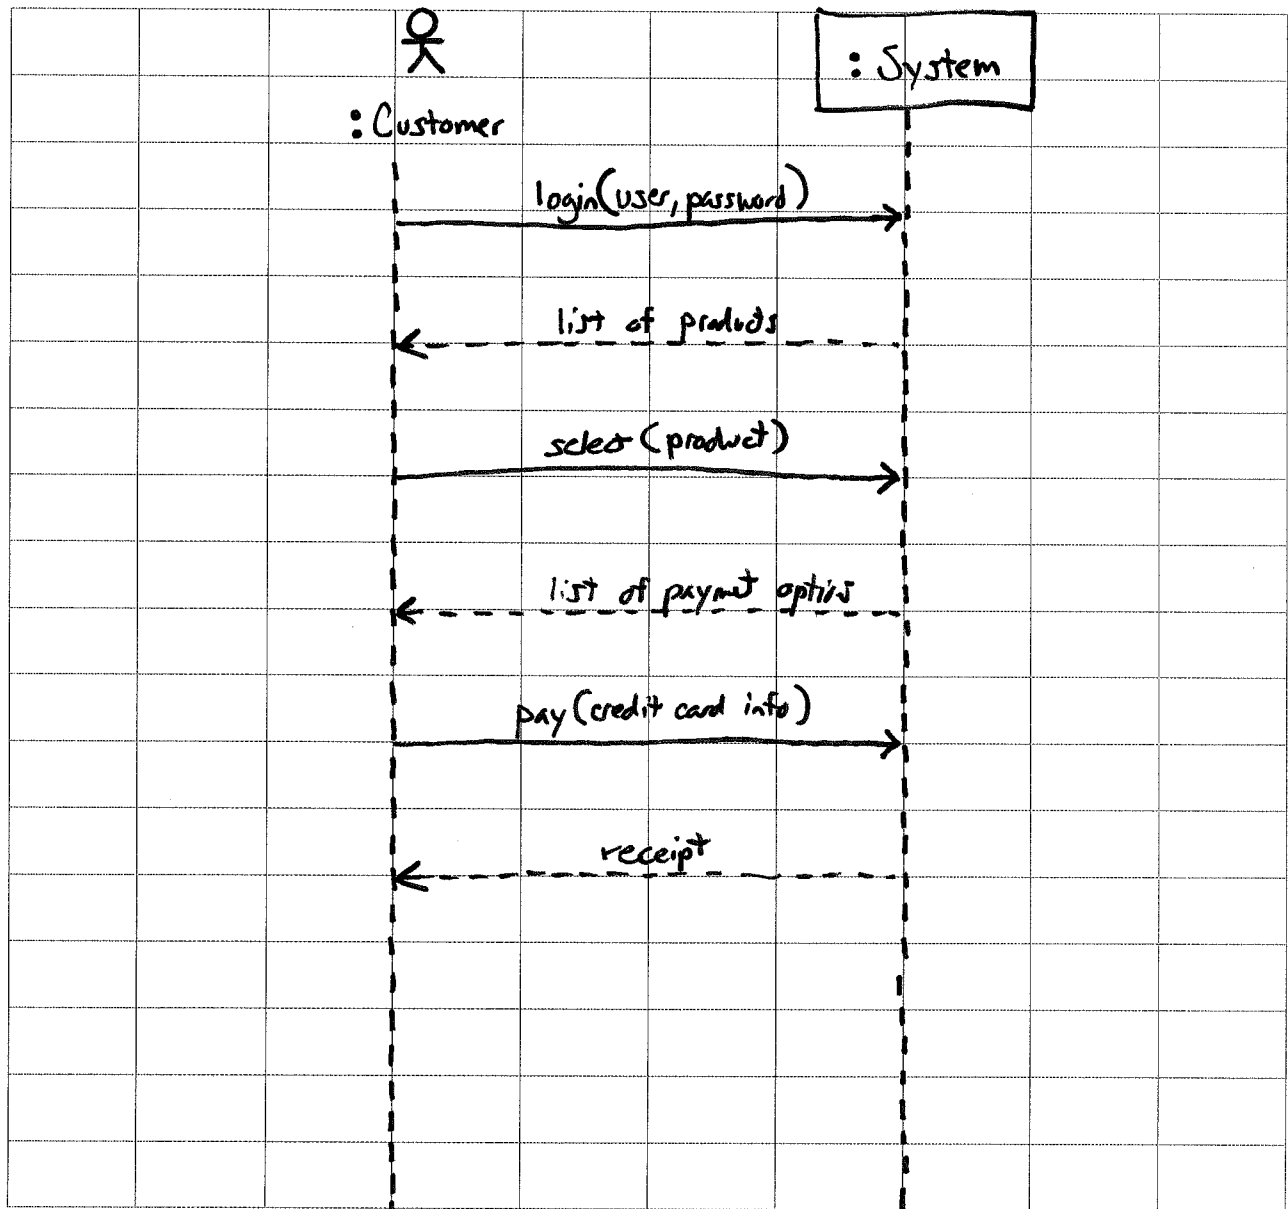 : System
: Customer
login(user, password)
list of products
select (product)
list of paymet optins
pay (credit card info)
receipt